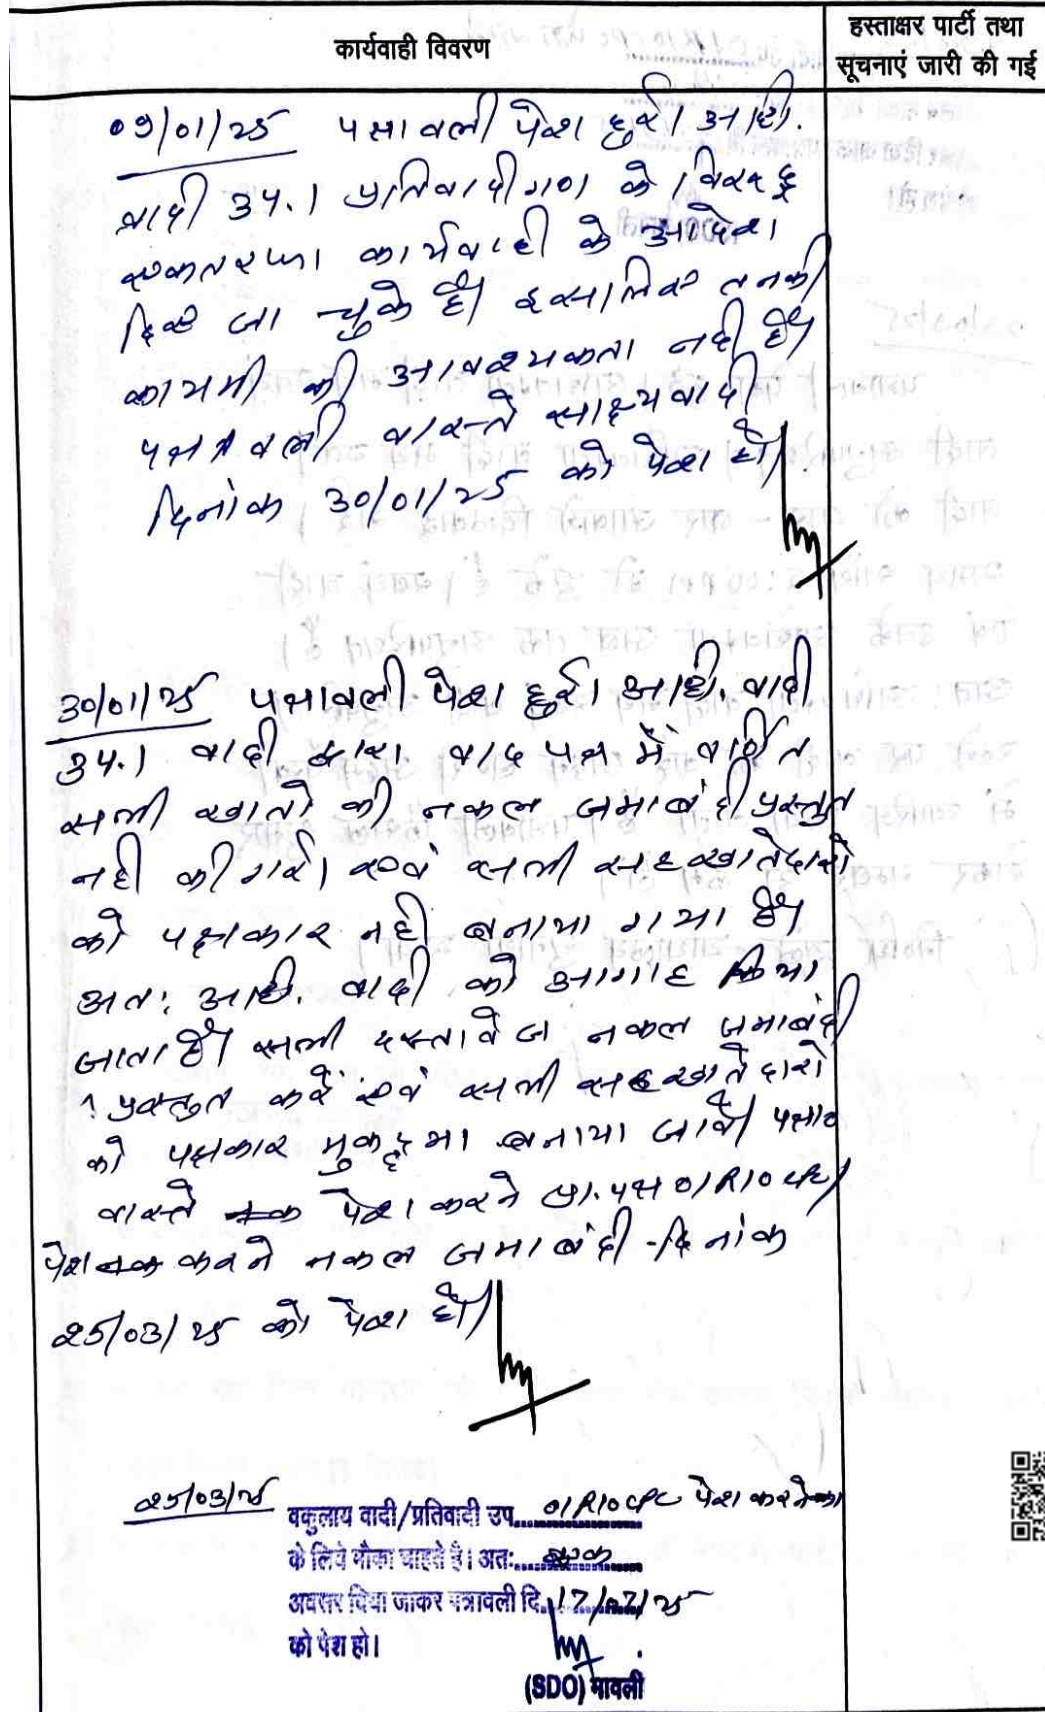 कार्यवाही विवरण
हस्ताक्षर पार्टी तथा
सूचनाएं जारी की गई
09/01/25 पत्रावली पेश हुई। अधि.
वादी उप.। प्रतिवादीगण के विरुद्ध
एकतरफा कार्यवाही के आदेश
दिये जा चुके है। इसलिए तनकी
कायमी की आवश्यकता नही है।
पत्रावली वास्ते साक्ष्य वादी
दिनांक 30/01/25 को पेश हो।
30/01/25 पत्रावली पेश हुई। अधि. वादी
उप.। वादी द्वारा वाद पत्र में वर्णित
सभी खातो की नकल जमाबंदी प्रस्तुत
नही की गई। एवं सभी सहखातेदारो
को पक्षकार नही बनाया गया है।
अत: अधि. वादी को आगाह किया
जाता है। सभी दस्तावेज नकल जमाबंदी
प्रस्तुत करें एवं सभी सहखातेदारो
को पक्षकार मुकद्दमा बनाया जावे। पत्राव
वास्ते पेश करने प्रा.पत्र 01R10 CPC/
पेश करने नकल जमाबंदी दिनांक
25/03/25 को पेश हो।
25/03/25
वकुलाय वादी/प्रतिवादी उप. 01R10 CPC पेश करने का
के लिये मौका चाहते है। अत: एक
अवसर दिया जाकर पत्रावली दि. 17/07/25
को पेश हो।
(SDO) मावली